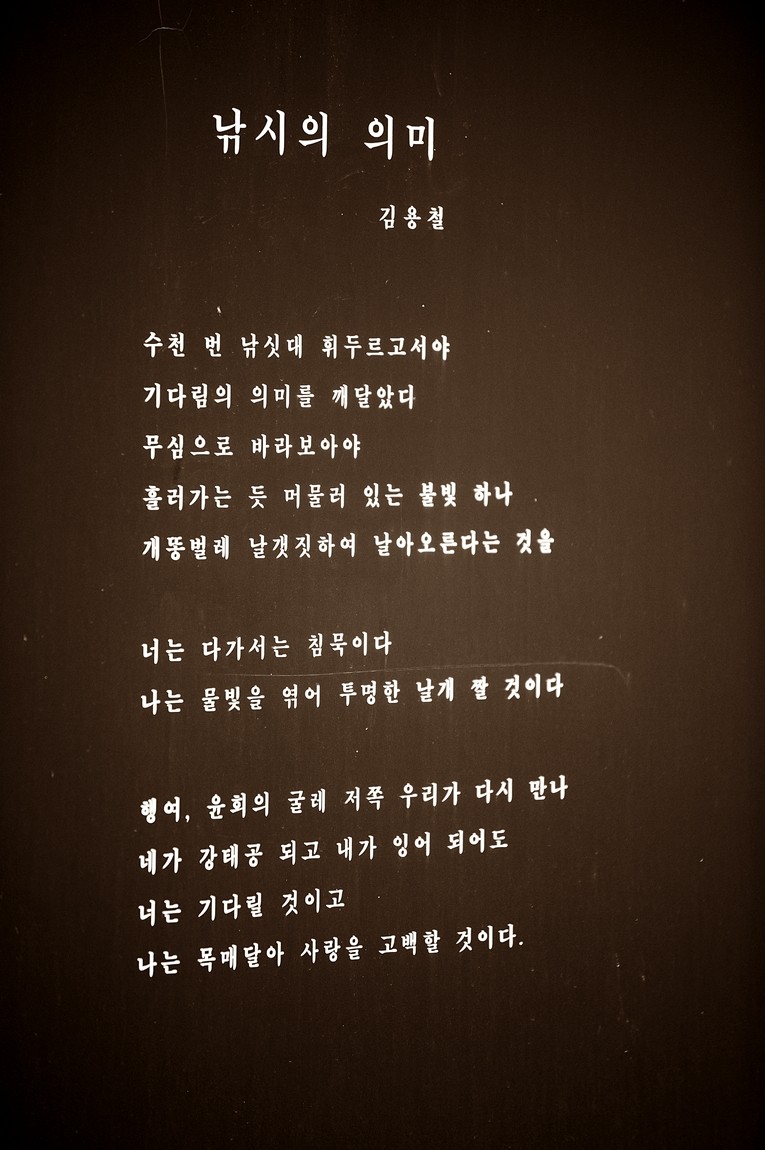 낚시의 의미
김용철
수천 번 낚싯대 휘두르고서야
기다림의 의미를 깨달았다
무심으로 바라보아야
흘러가는 듯 머물러 있는 불빛 하나
개똥벌레 날갯짓하여 날아오른다는 것을
너는 다가서는 침묵이다
나는 물빛을 엮어 투명한 날개 짤 것이다
행여, 윤회의 굴레 저쪽 우리가 다시 만나
네가 강태공 되고 내가 잉어 되어도
너는 기다릴 것이고
나는 목매달아 사랑을 고백할 것이다.